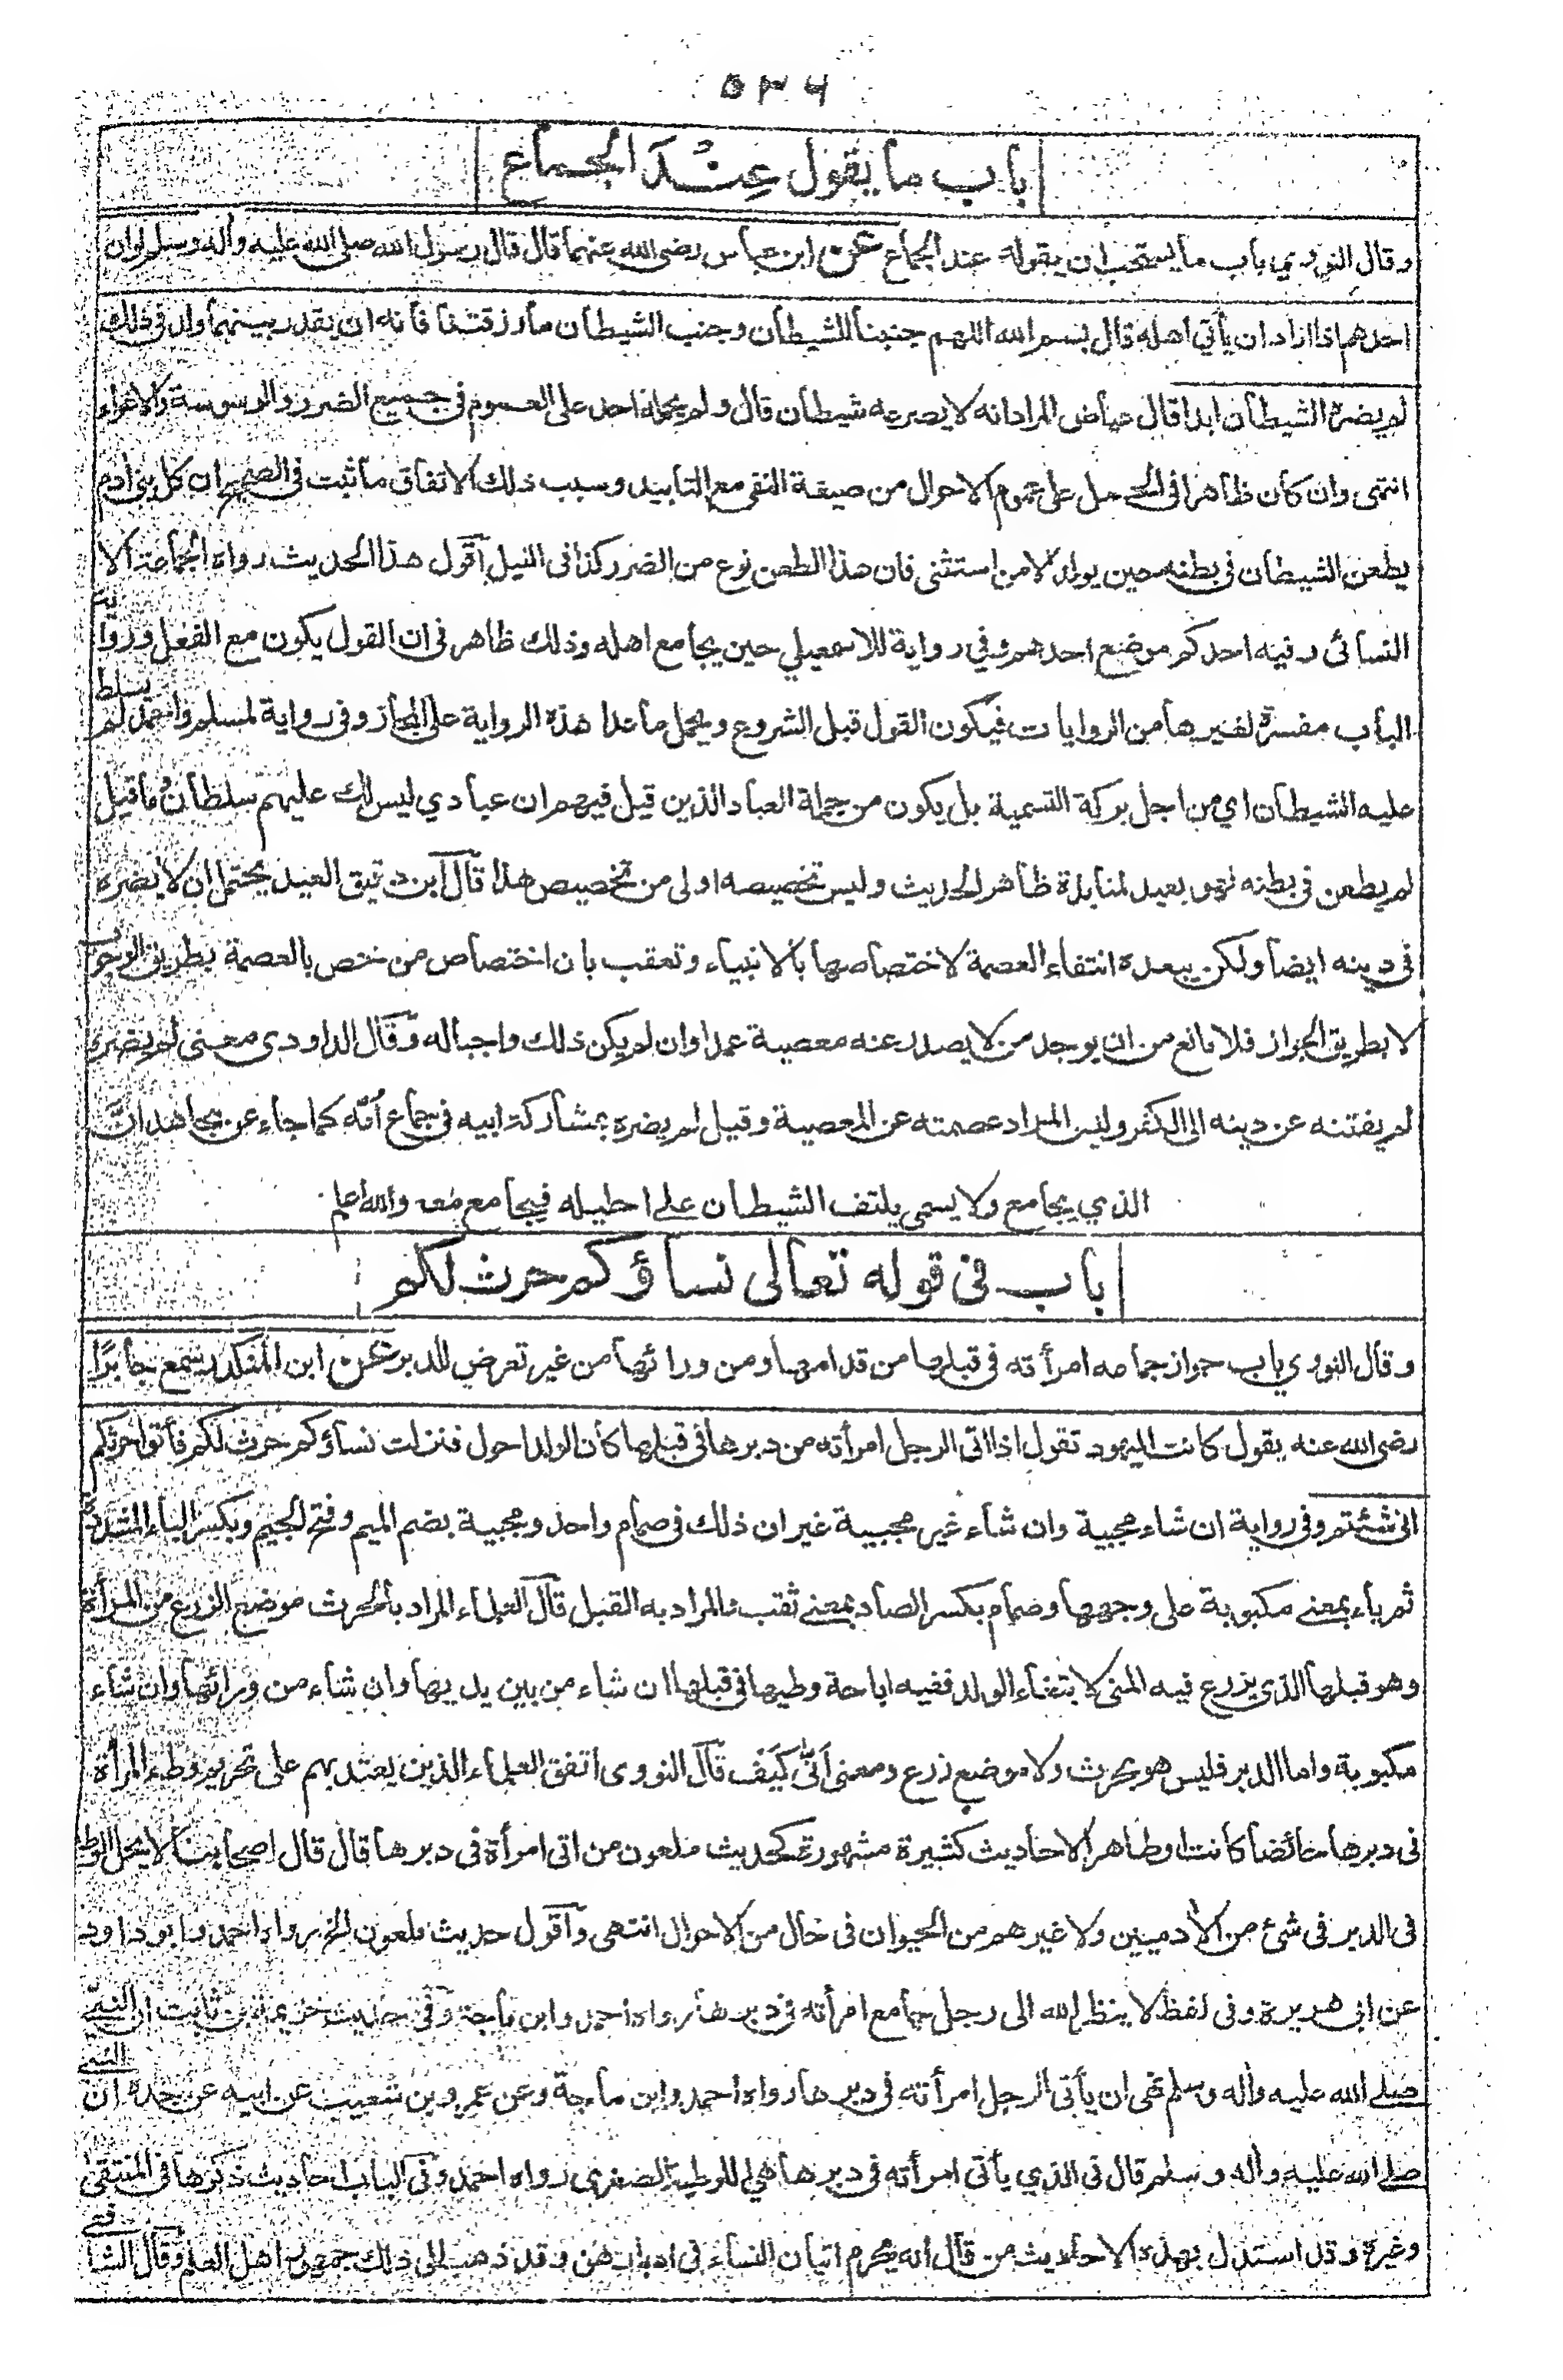 ٥٣٦
باب ما يقول عند الجماع
وقال النووي باب ما يستحب ان يقوله عند الجماع عن ابن عباس رضى الله عنهما قال قال رسول الله صلى الله عليه وآله وسلم لو ان
احدهم اذا اراد ان يأتي اهله قال بسم الله اللهم جنبنا الشيطان وجنب الشيطان ما رزقتنا فانه ان يقدر بينهما ولد في ذلك
لم يضره الشيطان ابدا قال عياض المراد انه لا يصرعه شيطان قال ولم يحمله احد على العموم في جميع الضرر والوسوسة والاغواء
انتهى وان كان ظاهرا في الحمل على عموم الاحوال من صيغة النفي مع التابيد وسبب ذلك الاتفاق ما ثبت في الصحيح ان كل بني ادم
يطعن الشيطان في بطنه حين يولد الا من استثنى فان هذا الطعن نوع من الضرر كذا في النيل اقول هذا الحديث رواه الجماعة الا
النسائى وفيه احدكم موضع احدهم وفي رواية للاسمعيلي حين يجامع اهله وذلك ظاهر في ان القول يكون مع الفعل ورواية
الباب مفسرة لغيرها من الروايات فيكون القول قبل الشروع ويحمل ما عدا هذه الرواية على المجاز وفي رواية لمسلم واحمد لم يسلط
عليه الشيطان اي من اجل بركة التسمية بل يكون من جملة العباد الذين قيل فيهم ان عبادي ليس لك عليهم سلطان وما قيل
لم يطعن في بطنه فهو بعيد لمنابذة ظاهر الحديث وليس تخصيصه اولى من تخصيص هذا قال ابن دقيق العيد يحتمل ان لا يضره
في دينه ايضا ولكن يبعده انتفاء العصمة لاختصاصها بالانبياء وتعقب بان اختصاص من خص بالعصمة بطريق الوجوب
لا بطريق الجواز فلا مانع من ان يوجد من لا يصدر عنه معصية عمدا وان لم يكن ذلك واجبا له وقال الداودي معنى لم يضره
لم يفتنه عن دينه الى الكفر وليس المراد عصمته عن المعصية وقيل لم يضره بمشاركة ابيه في جماع أمه كما جاء عن مجاهد ان
الذي يجامع ولا يسمي يلتف الشيطان على احليله فيجامع معه والله اعلم
باب في قوله تعالى نساؤكم حرث لكم
وقال النووي باب جواز جماعه امرأته في قبلها من قدامها ومن ورائها من غير تعرض للدبر عن ابن المنكدر سمع جابرا
رضى الله عنه يقول كانت اليهود تقول اذا اتى الرجل امرأته من دبرها في قبلها كان الولد احول فنزلت نساؤكم حرث لكم فأتوا حرثكم
انى شئتم وفي رواية ان شاء مجبية وان شاء غير مجبية غير ان ذلك في صمام واحد ومجبية بضم الميم وفتح الجيم وبكسر الباء المشددة
ثم ياء بمعنى مكبوبة على وجهها وصمام بكسر الصاد بمعنى ثقب والمراد به القبل قال العلماء المراد بالحرث موضع الزرع من المرأة
وهو قبلها الذي يزرع فيه المني لابتغاء الولد ففيه اباحة وطيها في قبلها ان شاء من بين يديها وان شاء من ورائها وان شاء
مكبوبة واما الدبر فليس هو بحرث ولا موضع زرع ومعنى أنى كيف قال النووى اتفق العلماء الذين يعتد بهم على تحريم وطء المرأة
فى دبرها حائضا كانت او طاهر الاحاديث كثيرة مشهورة كحديث ملعون من اتى امرأة فى دبرها قال قال اصحابنا لا يحل الوطء
فى الدبر فى شئ من الأدميين ولا غيرهم من الحيوان فى حال من الاحوال انتهى واقول حديث ملعون الخ رواه احمد وابو داود
عن ابى هريرة وفى لفظ لا ينظر الله الى رجل جامع امرأته في دبرها رواه احمد وابن ماجة وفي حديث خزيمة بن ثابت ان النبي
صلى الله عليه وآله وسلم نهى ان يأتى الرجل امرأته فى دبرها رواه احمد وابن ماجة وعن عمرو بن شعيب عن ابيه عن جده ان النبي
صلى الله عليه وآله وسلم قال فى الذي يأتى امرأته فى دبرها هي اللوطية الصغرى رواه احمد وفى الباب احاديث ذكرها فى المنتقى
وغيره وقد استدل بهذه الاحاديث من قال انه يحرم اتيان النساء فى ادبارهن وقد ذهب الى ذلك جمهور اهل العلم وقال الشافعي